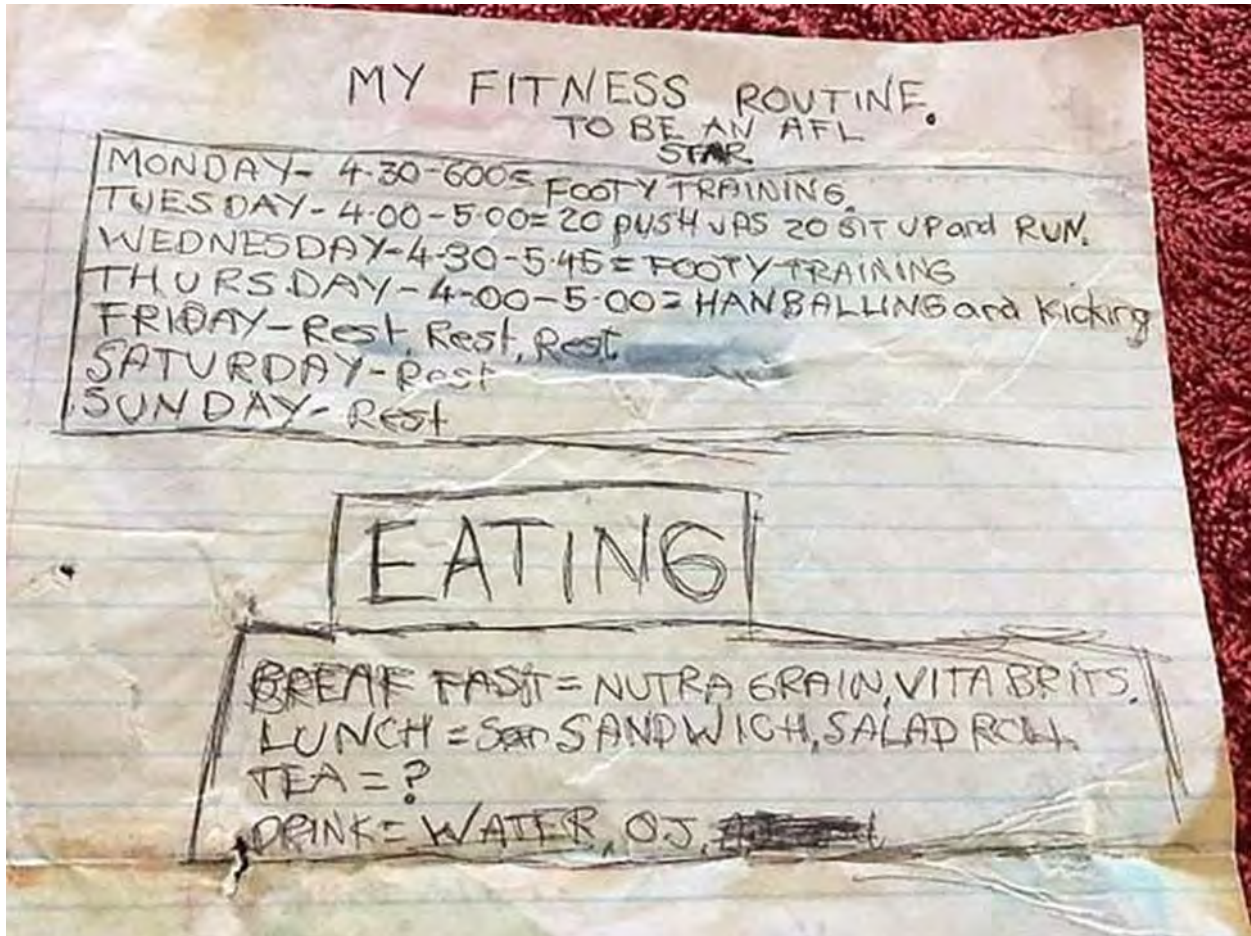 MY FITNESS ROUTINE.
TO BE AN AFL
STAR
MONDAY- 4-30-600= FOOTY TRAINING.
TUESDAY- 4-00-5-00= 20 PUSH UPS 20 SIT UP and RUN.
WEDNESDAY-4-30-5-45= FOOTY TRAINING
THURSDAY-4-00-5-00= HANBALLING and Kicking
FRIDAY-Rest, Rest, Rest
SATURDAY-Rest
SUNDAY- Rest
EATING
BREAK FAST= NUTRA GRAIN, VITA BRITS.
LUNCH = SANDWICH, SALAD ROLL
TEA = ?
DRINK= WATER, OJ,